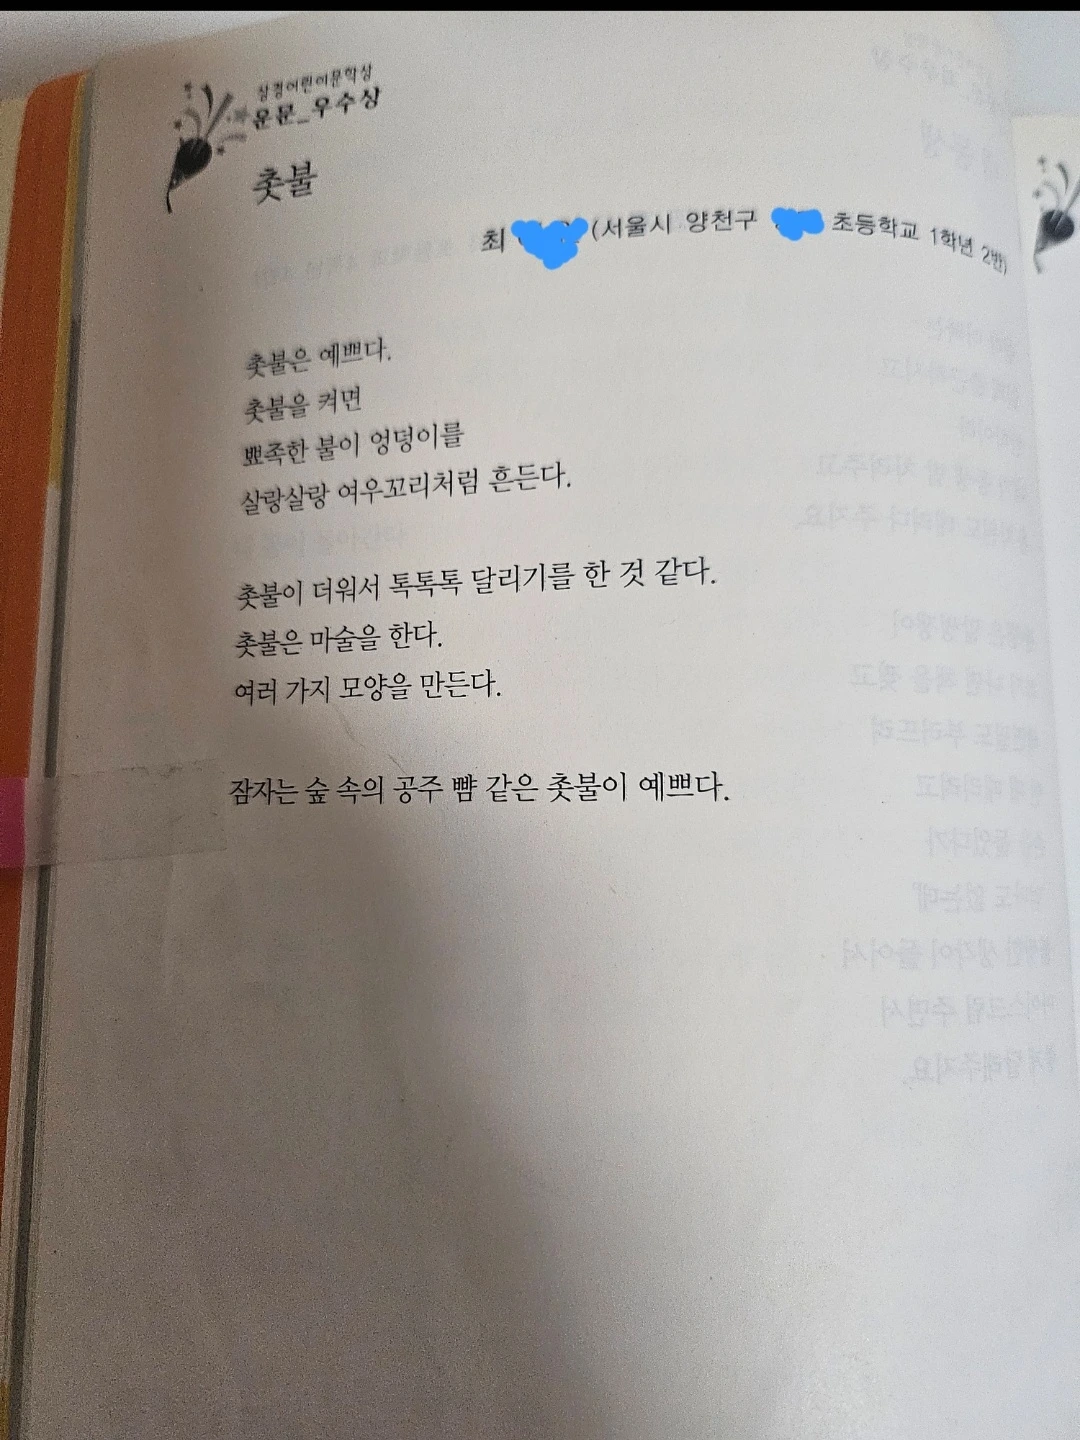 삼정어린이문학상
운문_우수상
촛불
최 (서울시 양천구 초등학교 1학년 2반)
촛불은 예쁘다.
촛불을 켜면
뾰족한 불이 엉덩이를
살랑살랑 여우꼬리처럼 흔든다.
촛불이 더워서 톡톡톡 달리기를 한 것 같다.
촛불은 마술을 한다.
여러 가지 모양을 만든다.
잠자는 숲 속의 공주 뺨 같은 촛불이 예쁘다.